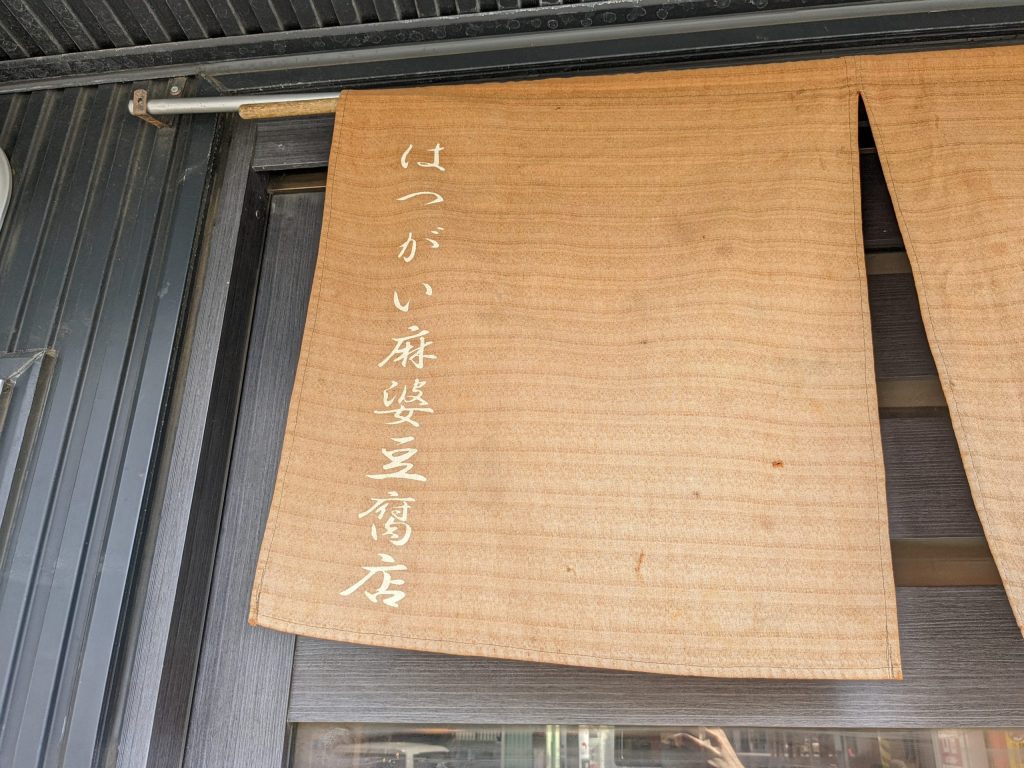 はつがい麻婆豆腐店